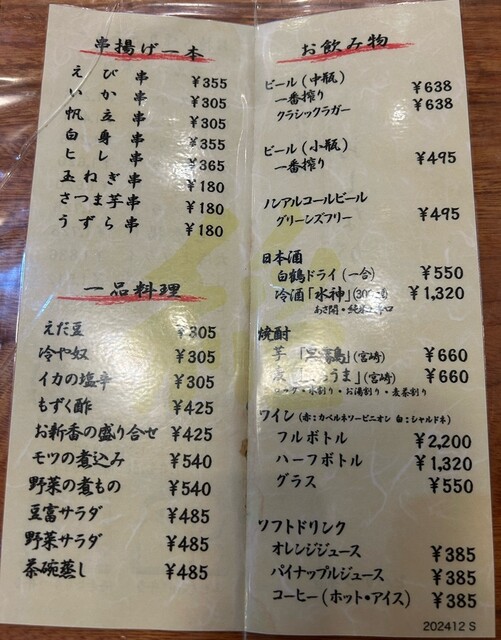 串揚げ一本
えび串 ¥355
いか串 ¥305
帆立串 ¥305
白身串 ¥355
ヒレ串 ¥365
玉ねぎ串 ¥180
さつま芋串 ¥180
うずら串 ¥180
一品料理
えだ豆 ¥305
冷や奴 ¥305
イカの塩辛 ¥305
もずく酢 ¥425
お新香の盛り合せ ¥425
モツの煮込み ¥540
野菜の煮もの ¥540
豆富サラダ ¥485
野菜サラダ ¥485
茶碗蒸し ¥485
お飲み物
ビール(中瓶)
一番搾り ¥638
クラシックラガー ¥638
ビール(小瓶)
一番搾り ¥495
ノンアルコールビール
グリーンズフリー ¥495
日本酒
白鶴ドライ(一合) ¥550
冷酒「水神」 ¥1,320
あさ開・純米
焼酎
芋 (宮崎) ¥660
うま」(宮崎) ¥660
水割り・お湯割り・麦茶割り
ワイン(赤:カベルネソービニオン 白:シャルドネ)
フルボトル ¥2,200
ハーフボトル ¥1,320
グラス ¥550
ソフトドリンク
オレンジジュース ¥385
パイナップルジュース ¥385
コーヒー(ホット・アイス) ¥385
202412 S